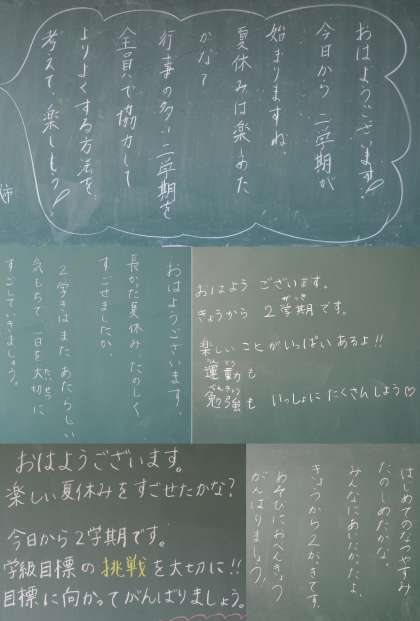 おはようございます!
今日から二学期が
始まりますね。
夏休みは楽しめた
かな?
行事の多い二学期を
全員で協力して
よりよくする方法を
考えて、楽しもう!
おはようございます。
長かった夏休み たのしく
すごせましたか。
2学きはまた あたらしい
気もちで 一日を大切に
たいせつ
すごしていきましょう。
おはよう ございます。
がっき
きょうから 2学期です。
楽しいことがいっぱいあるよ!!
うんどう
運動も
べんきょう
勉強も いっしょにたくさんしよう♡
おはようございます。
楽しい夏休みをすごせたかな?
今日から2学期です。
学級目標の挑戦を大切に!!
目標に向かってがんばりましょう。
はじめてのなつやすみ
たのしめたかな。
みんなにあいたかったよ。
きょうから2がっきです。
あそびにおべんきょう
がんばりましょう。